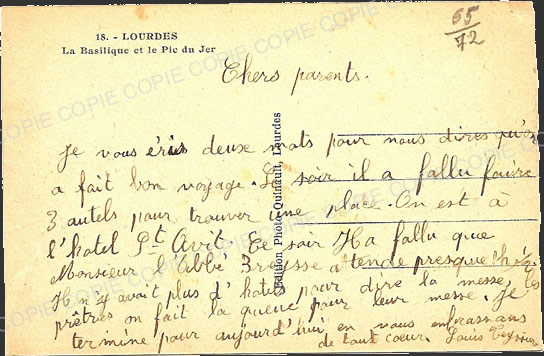 18. - LOURDES
La Basilique et le Pic du Jer
65/72
Chers parents.
Je vous éris deux mots pour nous dires qu'on
a fait bon voyage. Le soir il a fallu faire
3 autels pour trouver une place. On est à
l'hotel St Avit. Ce soir Ha fallu que
Monsieur l'Abbé tende presque
H n'y avait plus d'hotels pour dire la messe, les
prêtres on fait la queue pour leur messe. Je
termine pour aujourd'hui en vous enbrassans
de tout coeur. Louis
Edition Photo Quinault, Lourdes
COPIE COPIE COPIE COPIE COPIE